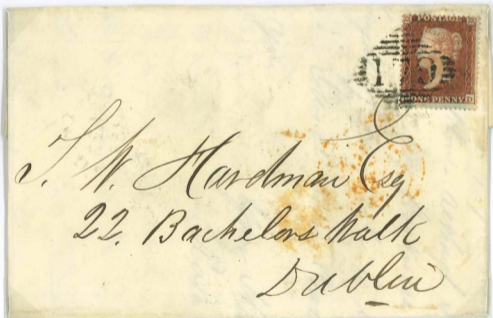 POSTAGE
179
ONE PENNY
J. W. Hardman Esq
22. Bachelors Walk
Dublin